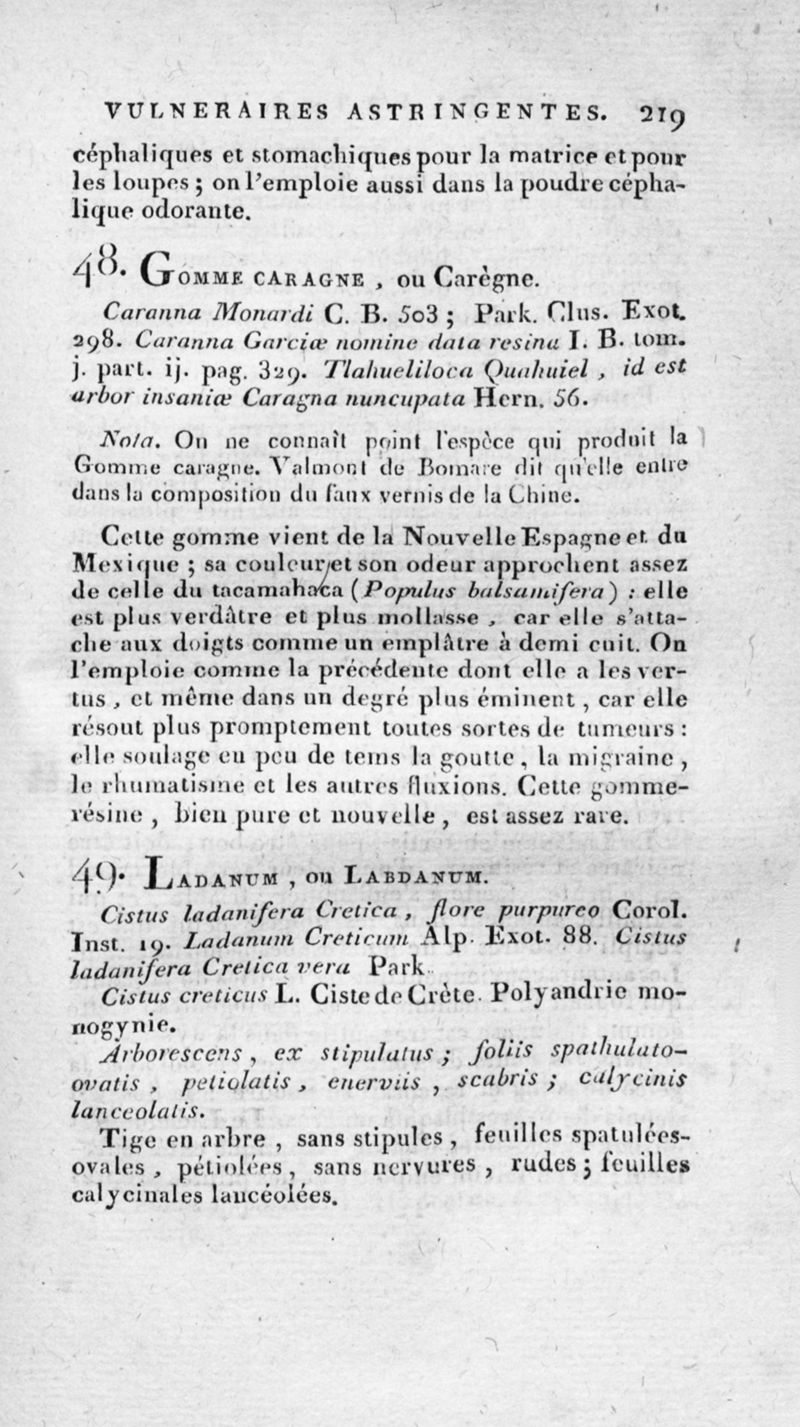 VULNERAIRES ASTRINGENTES. 219
céphaliques et stomachiques pour la matrice et pour
les loupes ; on l'emploie aussi dans la poudre cépha-
lique odorante.
48. GOMME CARAGNE , ou Carègne.
Caranna Monardi C. B. 503 ; Park. Clus. Exot.
298. Caranna Garciæ nomine data resina I. B. tom.
j. part. ij. pag. 329. Tlahueliloca Quahuiel , id est
arbor insaniæ Caragna nuncupata Hern. 56.
Nota. On ne connaît point l'espèce qui produit la
Gomme caragne. Valmont de Bomare dit qu'elle entre
dans la composition du faux vernis de la Chine.
Cette gomme vient de la Nouvelle Espagne et du
Mexique ; sa couleur et son odeur approchent assez
de celle du tacamahaca ( Populus balsamifera ) : elle
est plus verdâtre et plus mollasse , car elle s'atta-
che aux doigts comme un emplâtre à demi cuit. On
l'emploie comme la précédente dont elle a les ver-
tus , et même dans un degré plus éminent , car elle
résout plus promptement toutes sortes de tumeurs :
elle soulage en peu de tems la goutte , la migraine ,
le rhumatisme et les autres fluxions. Cette gomme-
résine , bien pure et nouvelle , est assez rare.
49. LADANUM , ou LABDANUM.
Cistus ladanifera Cretica , flore purpureo Corol.
Inst. 19. Ladanum Creticum Alp. Exot. 88. Cistus
ladanifera Cretica vera Park.
Cistus creticus L. Ciste de Crète. Polyandrie mo-
nogynie.
Arborescens , ex stipulatus ; foliis spathulato-
ovatis , petiolatis , enerviis , scabris ; calycinis
lanceolatis.
Tige en arbre , sans stipules , feuilles spatulées-
ovales , pétiolées , sans nervures , rudes ; feuilles
calycinales lancéolées.